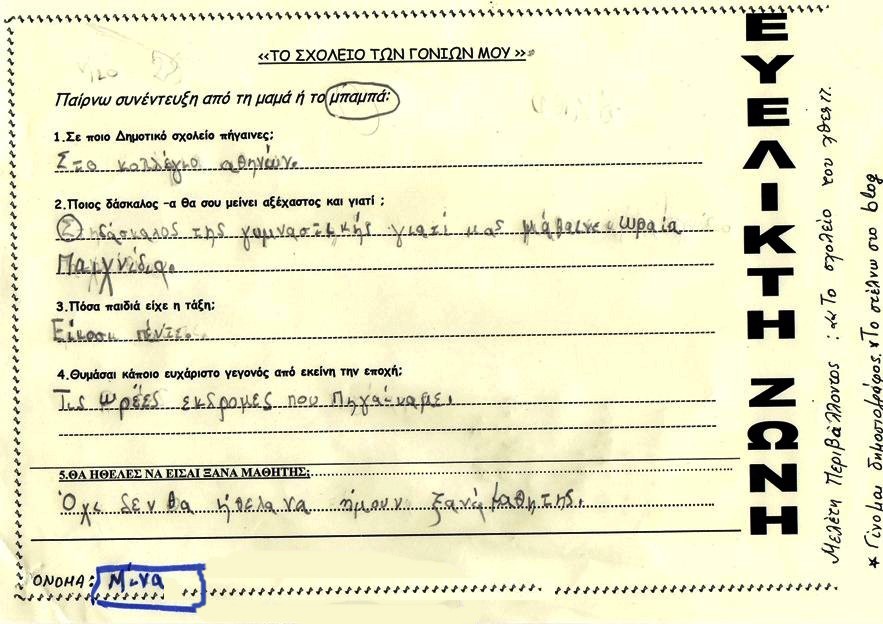 «ΤΟ ΣΧΟΛΕΙΟ ΤΩΝ ΓΟΝΙΩΝ ΜΟΥ »
Παίρνω συνέντευξη από τη μαμά ή το μπαμπά:
1.Σε ποιο Δημοτικό σχολείο πήγαινες;
Στο κολλέγιο αθηνών.
2.Ποιος δάσκαλος -α θα σου μείνει αξέχαστος και γιατί ;
δάσκαλος της γυμναστικής γιατί μας μάθαινε ωραία
Παιχνίδια.
3.Πόσα παιδιά είχε η τάξη;
Είκοσι πέντε.
4.Θυμάσαι κάποιο ευχάριστο γεγονός από εκείνη την εποχή;
Τις ωρέες εκδρομες που πηγαίναμε.
5.ΘΑ ΗΘΕΛΕΣ ΝΑ ΕΙΣΑΙ ΞΑΝΑ ΜΑΘΗΤΗΣ;
Όχι δεν θα ήθελα να ήμουν ξανά μαθητης.
ΟΝΟΜΑ: Μίνα
ΕΥΕΛΙΚΤΗ ΖΩΝΗ
Μελέτη Περιβάλλοντος : «Το σχολείο του χθες
* Γίνομαι δημοσιογράφος. Το στέλνω στο blog